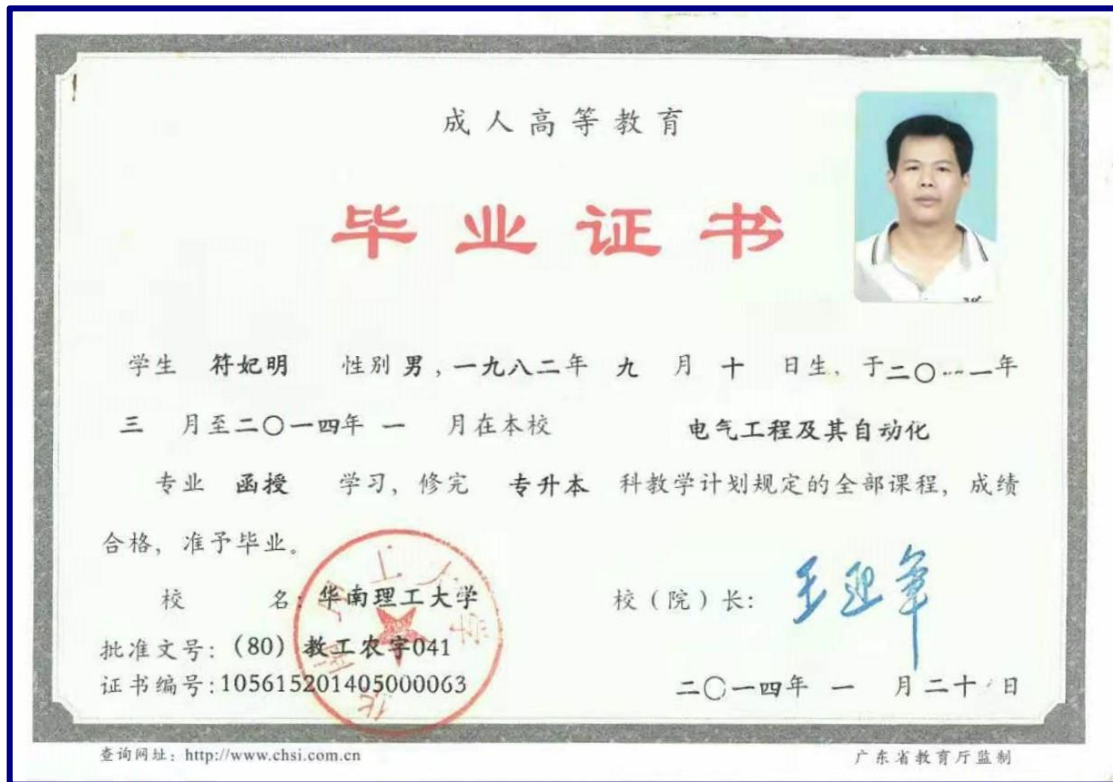 成人高等教育
毕业证书
学生 符妃明 性别 男,一九八二年 九 月 十 日生,于二〇一一年
三 月至二〇一四年 一 月在本校 电气工程及其自动化
专业 函授 学习,修完 专升本 科教学计划规定的全部课程,成绩
合格,准予毕业。
校 名:华南理工大学 校(院)长:
批准文号:(80)教工农字041
证书编号:105615201405000063 二〇一四年 一 月二十 日
查询网址:http://www.chsi.com.cn 广东省教育厅监制